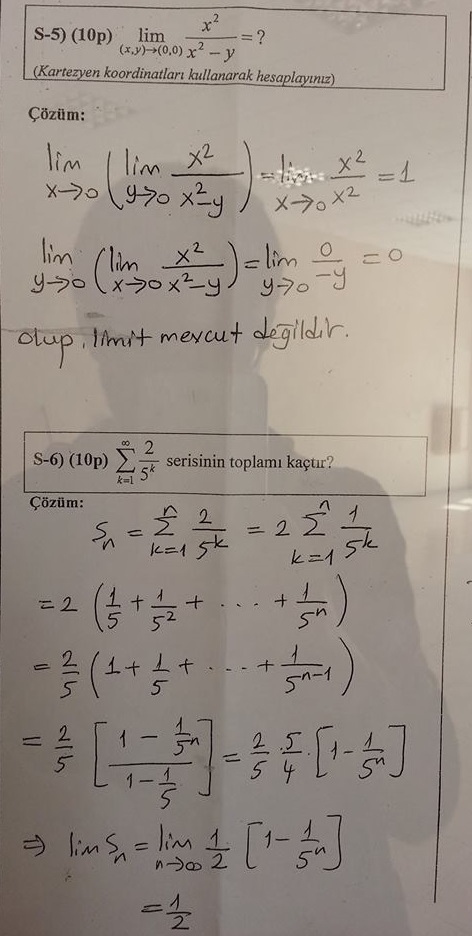 S-5) (10p) lim_{(x,y)→(0,0)} x²/(x² − y) = ?
(Kartezyen koordinatları kullanarak hesaplayınız)
Çözüm:
lim_{x→0} ( lim_{y→0} x²/(x²−y) ) = lim_{x→0} x²/x² = 1
lim_{y→0} ( lim_{x→0} x²/(x²−y) ) = lim_{y→0} 0/−y = 0
olup, limit mevcut değildir.
S-6) (10p) ∑_{k=1}^{∞} 2/5^k serisinin toplamı kaçtır?
Çözüm:
S_n = ∑_{k=1}^{n} 2/5^k = 2 ∑_{k=1}^{n} 1/5^k
= 2 ( 1/5 + 1/5² + ... + 1/5^n )
= 2/5 ( 1 + 1/5 + ... + 1/5^{n−1} )
= 2/5 [ (1 − 1/5^n)/(1 − 1/5) ] = 2/5 · 5/4 · [ 1 − 1/5^n ]
⇒ lim S_n = lim_{n→∞} 1/2 [ 1 − 1/5^n ]
= 1/2